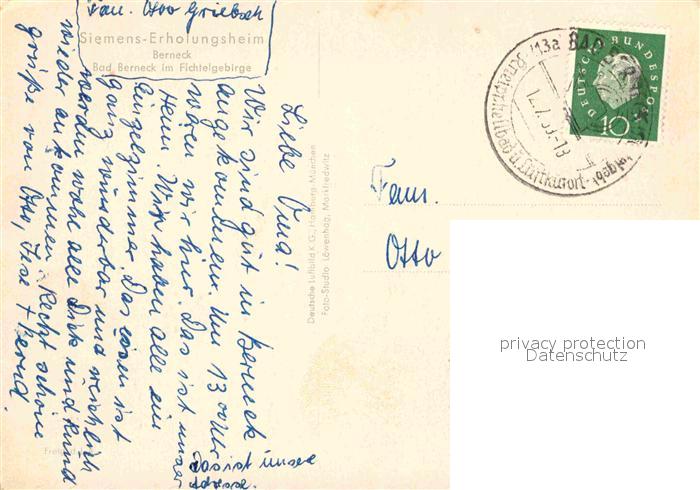 Fam. Otto Griebsch
Siemens-Erholungsheim
Berneck
Bad Berneck im Fichtelgebirge
Liebe Oma!
Wir sind gut in Berneck
angekommen. Um 13 00 Uhr
waren wir hier. Das ist unser
Heim. Wir haben alle ein
Einzelzimmer. Das Essen ist
ganz wunderbar und reichlich
werden wohl alle Dick und Rund
wieder ankommen. Recht schöne
grüße von Otto, Ilse + Bernd.
Das ist unsere
Adresse.
Deutsche Luftbild K.G., Hamburg-München
Foto-Studio Löwenhag, Marktredwitz
(13a) BAD BERNECK
12.7.59-13
Kneippheilbad u. Luftkurort
DEUTSCHE BUNDESPOST
10
Fam.
Otto
privacy protection
Datenschutz